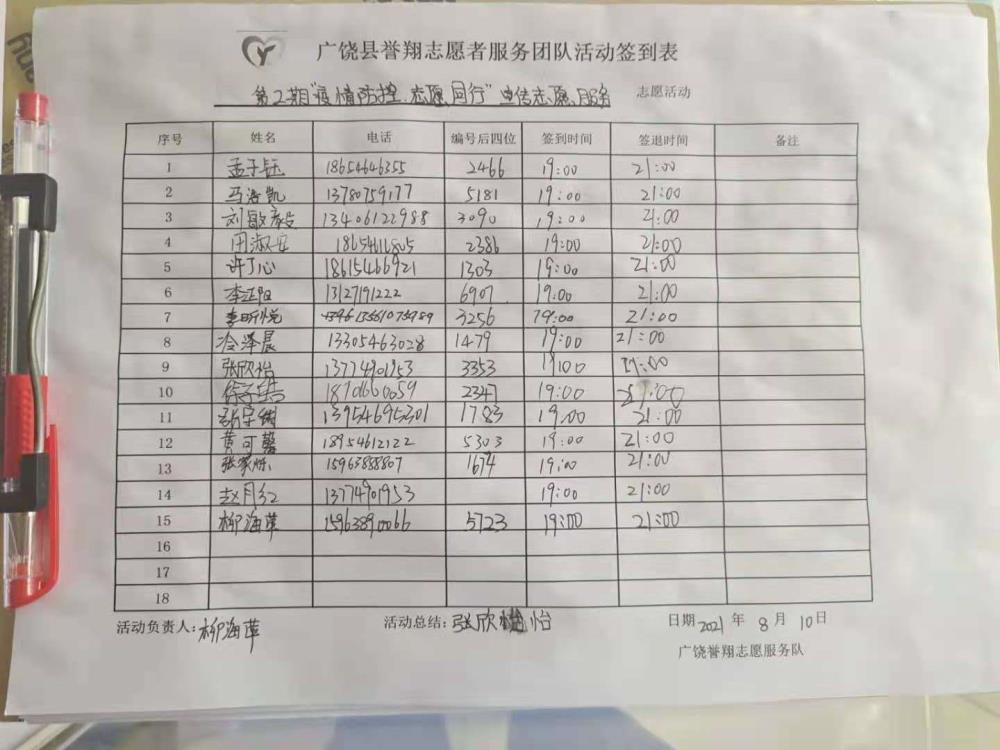 广饶县誉翔志愿者服务团队活动签到表
第2期"疫情防控,志愿同行"宣传志愿服务 志愿活动
序号 姓名 电话 编号后四位 签到时间 签退时间 备注
1 孟子钰 18654646355 2466 19:00 21:00
2 马浩凯 13780759177 5181 19:00 21:00
3 刘敏 13406122988 3090 19:00 21:00
4 田淑安 2386 19:00 21:00
5 许丁心 18615466921 1303 19:00 21:00
6 李正阳 13127191222 6907 19:00 21:00
7 李昕悦 3256 19:00 21:00
8 冷泽晨 13305463028 1479 19:00 21:00
9 张欣怡 13774901953 3353 19:00 21:00
10 2347 19:00 21:00
11 13954695301 1783 19:00 21:00
12 黄可馨 18954612122 5303 19:00 21:00
13 张家烁 15963888807 1674 19:00 21:00
14 赵月红 13774901953 19:00 21:00
15 柳海萍 15963890066 5723 19:00 21:00
16
17
18
活动负责人:柳海萍 活动总结:张欣怡 日期 2021 年 8 月 10 日
广饶誉翔志愿服务队